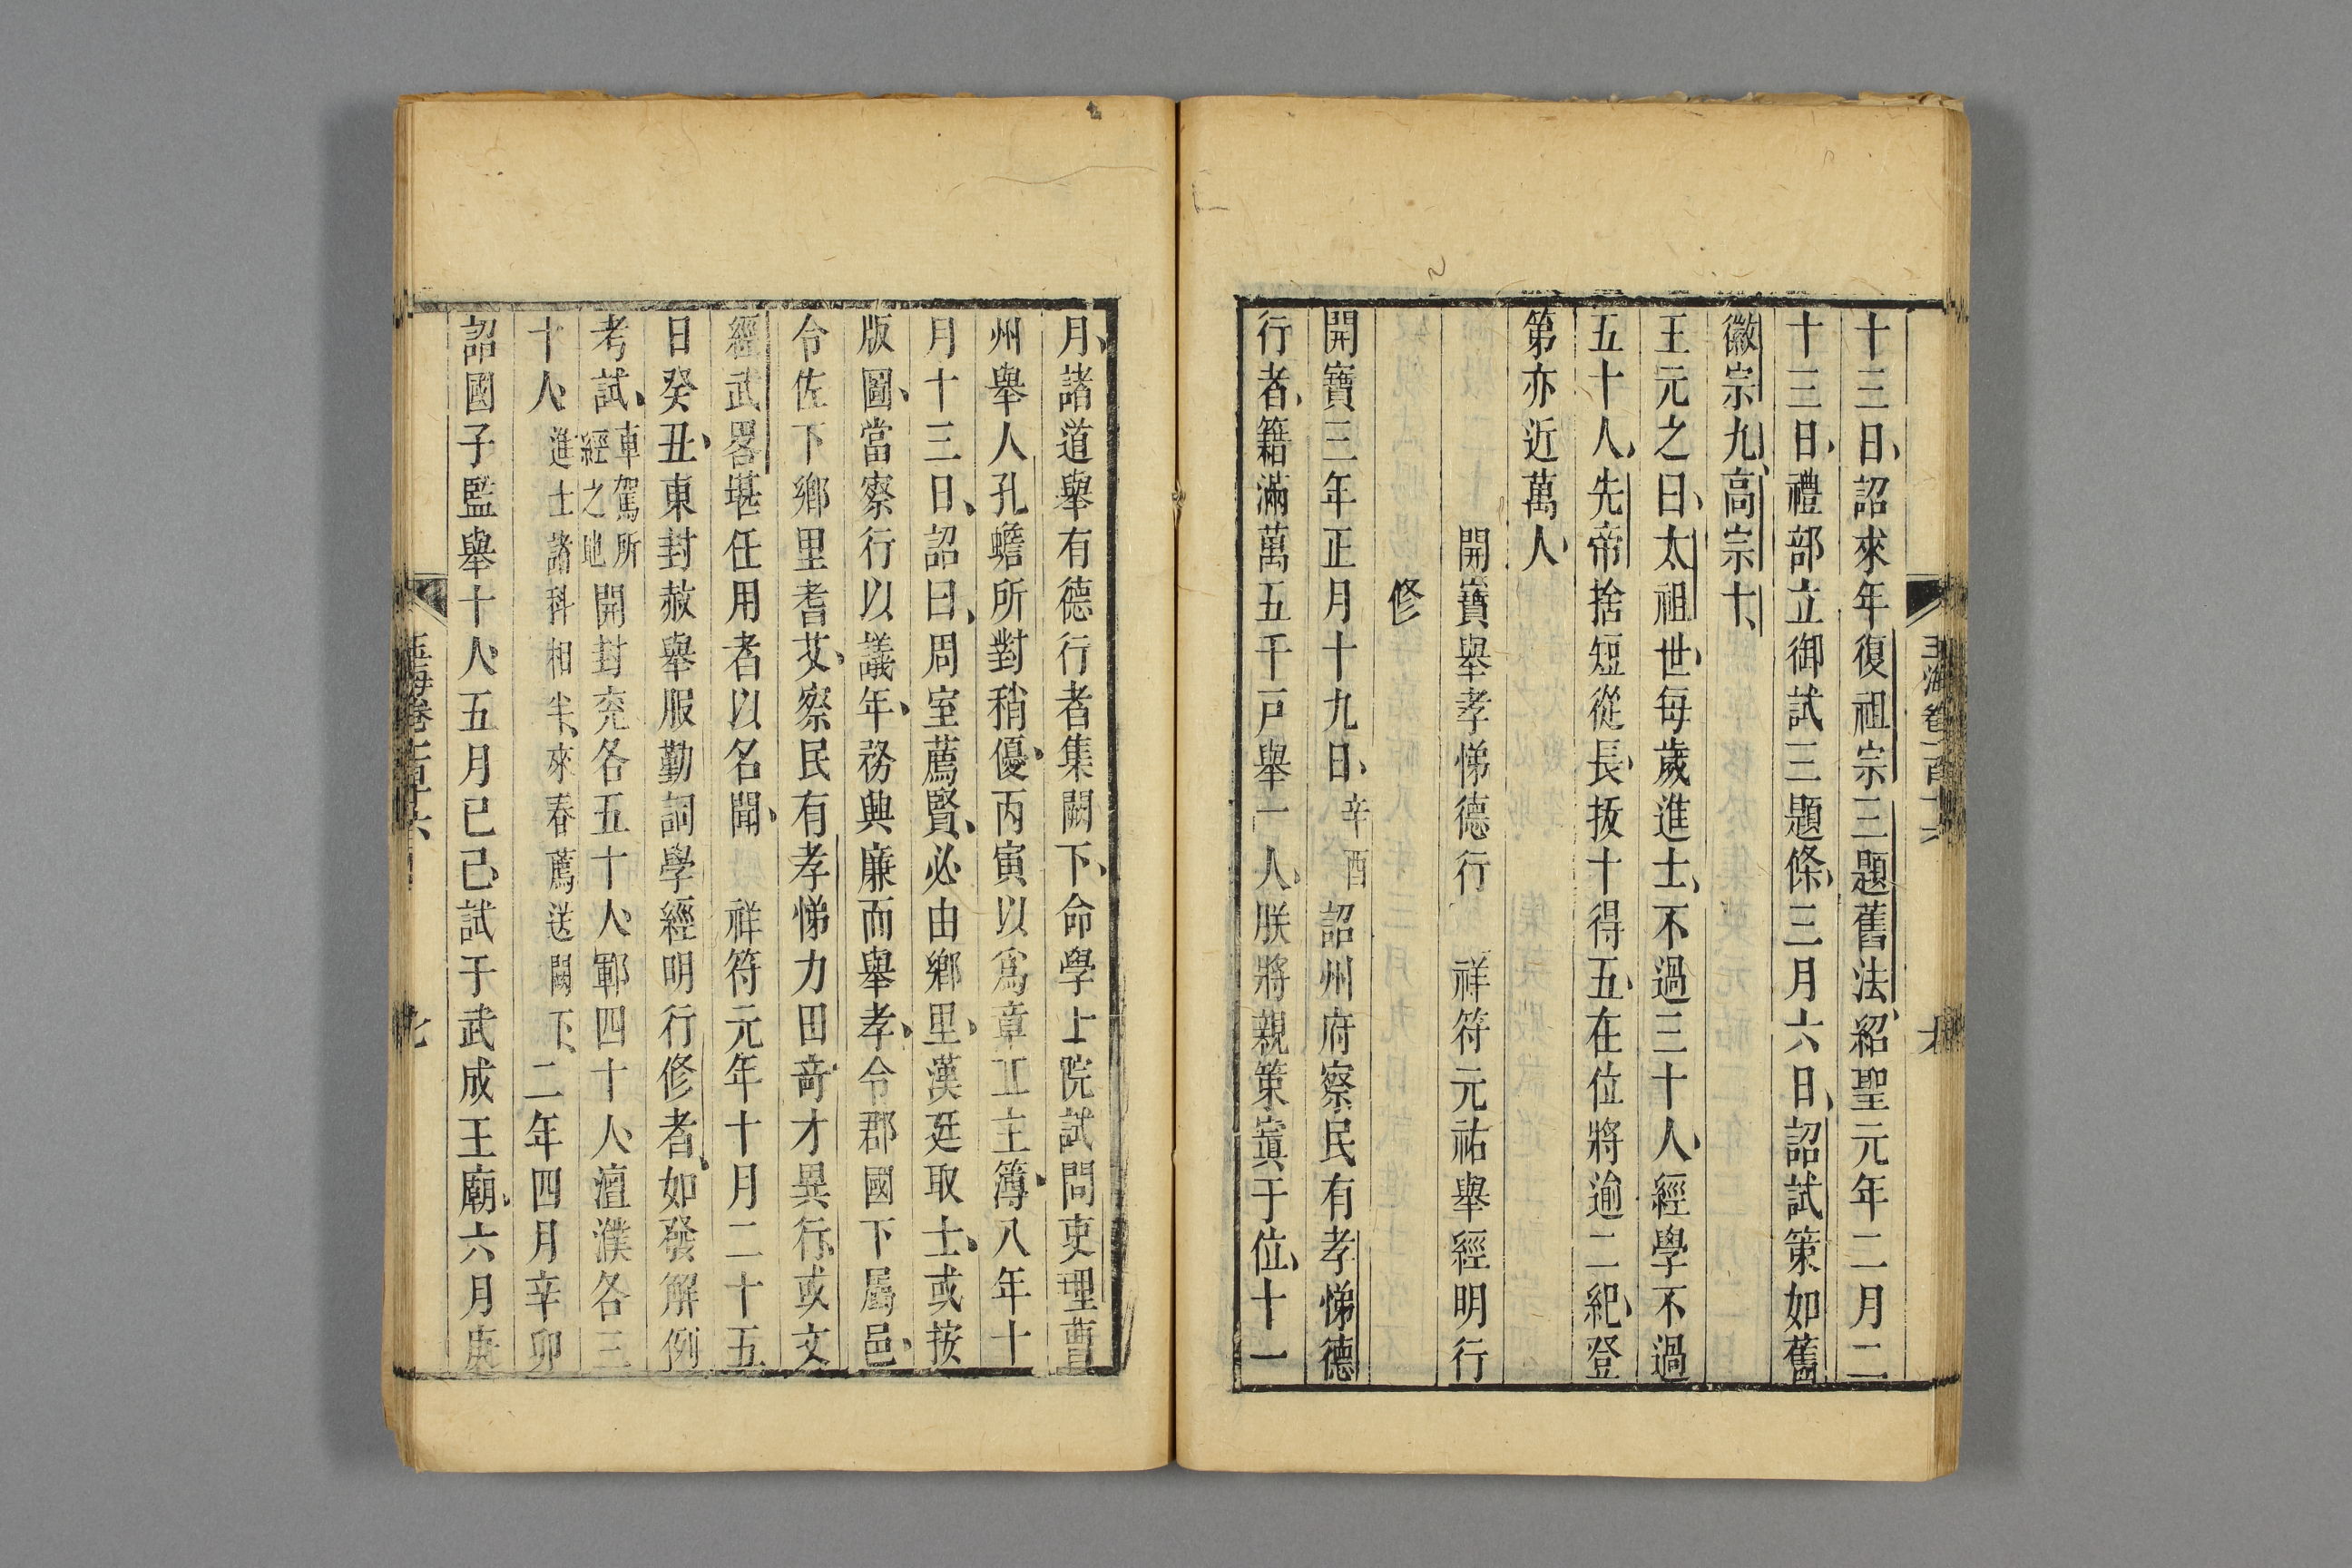 十三日詔來年復祖宗三題舊法紹聖元年二月二
十三日禮部立御試三題條三月六日詔試策如舊
徽宗九高宗十
王元之曰太祖世每歲進士不過三十人經學不過
五十人先帝捨短從長拔十得五在位將逾二紀登
第亦近萬人
開寶舉孝悌德行 祥符元祐舉經明行
修
開寶三年正月十九日辛酉詔州府察民有孝悌德
行者籍滿萬五千戸舉一人朕將親策寘于位十一
月諸道舉有德行者集闕下命學士院試問吏理曹
州舉人孔蟾所對稍優丙寅以爲章丘主簿八年十
月十三日詔曰周室薦賢必由鄉里漢廷取士或按
版圖當察行以議年務興廉而舉孝令郡國下屬邑
令佐下鄉里耆艾察民有孝悌力田奇才異行或文
經武畧堪任用者以名聞 祥符元年十月二十五
日癸丑東封赦舉服勤詞學經明行修者如發解例
考試車駕所經之地開封兖各五十人鄆四十人澶濮各三
十人進士諸科相半來春薦送闕下二年四月辛卯
詔國子監舉十人五月已己試于武成王廟六月庚
玉海卷一百十六